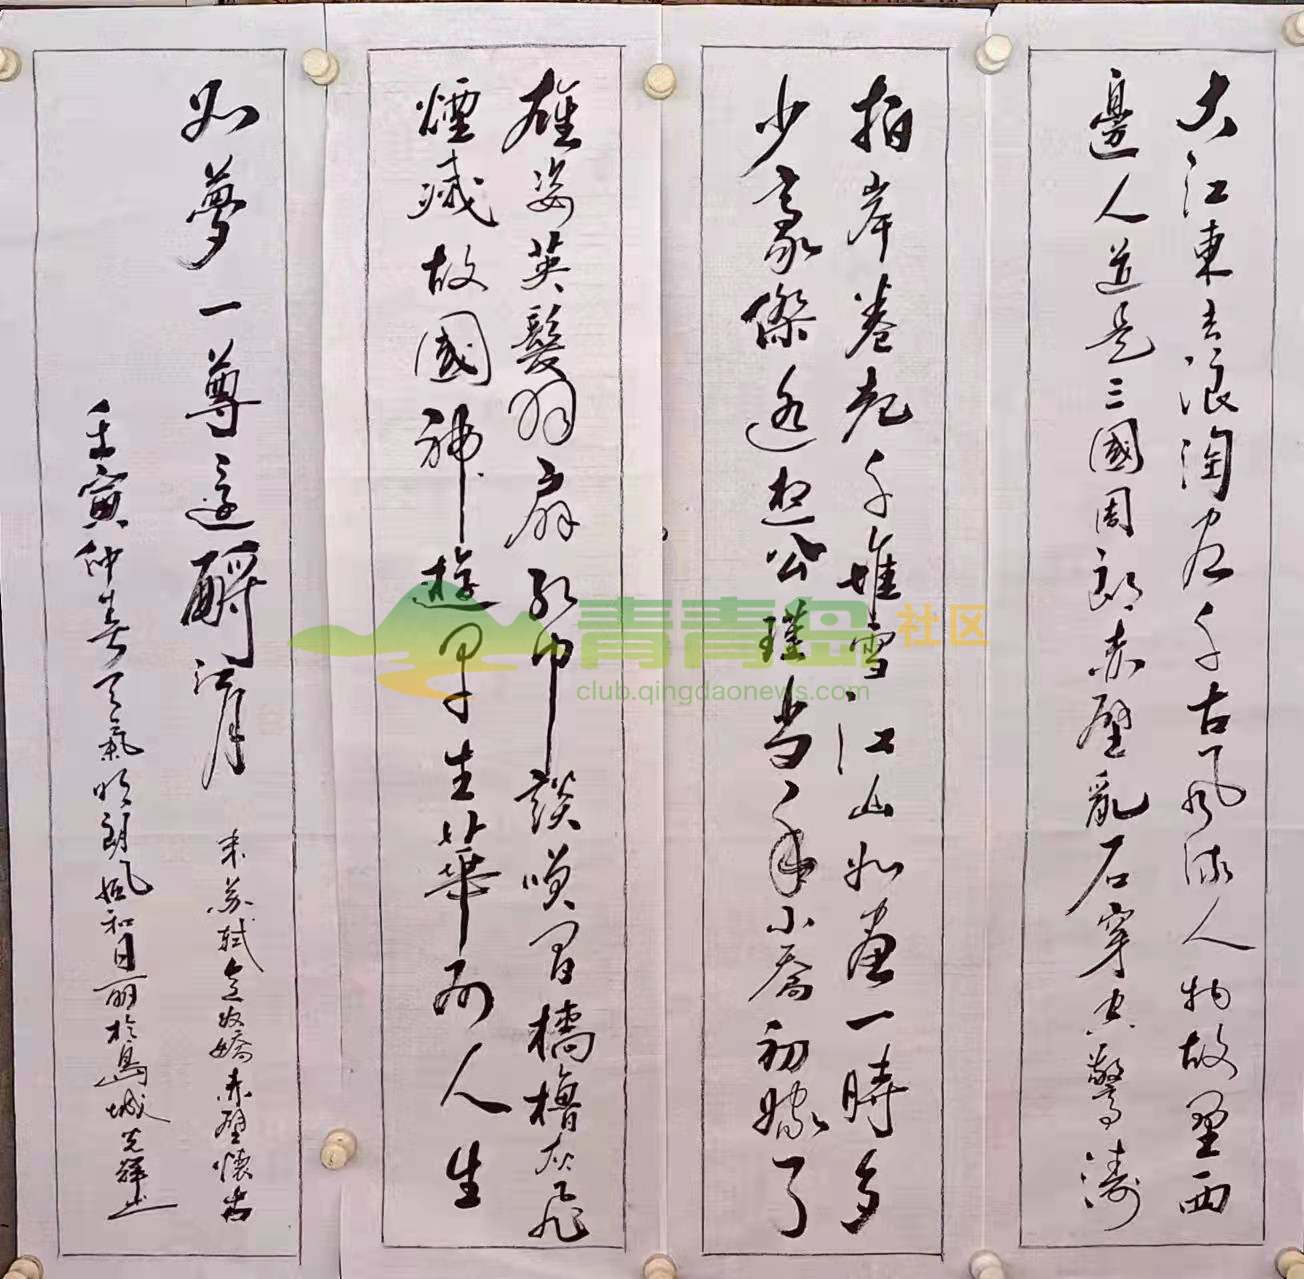 大江東去浪淘尽千古风流人物故壘西
邊人道是三國周郎赤壁亂石穿空驚濤
拍岸卷起千堆雪江山如畫一時多
少豪傑遙想公瑾當年小喬初嫁了
雄姿英發羽扇綸巾談笑間檣櫓灰飛
煙滅故國神遊早生華发人生
如夢一尊還酹江月
宋蘇軾念奴嬌赤壁懷古
壬寅仲春天氣明朗风和日丽於島城
青青岛社区
club.qingdaonews.com